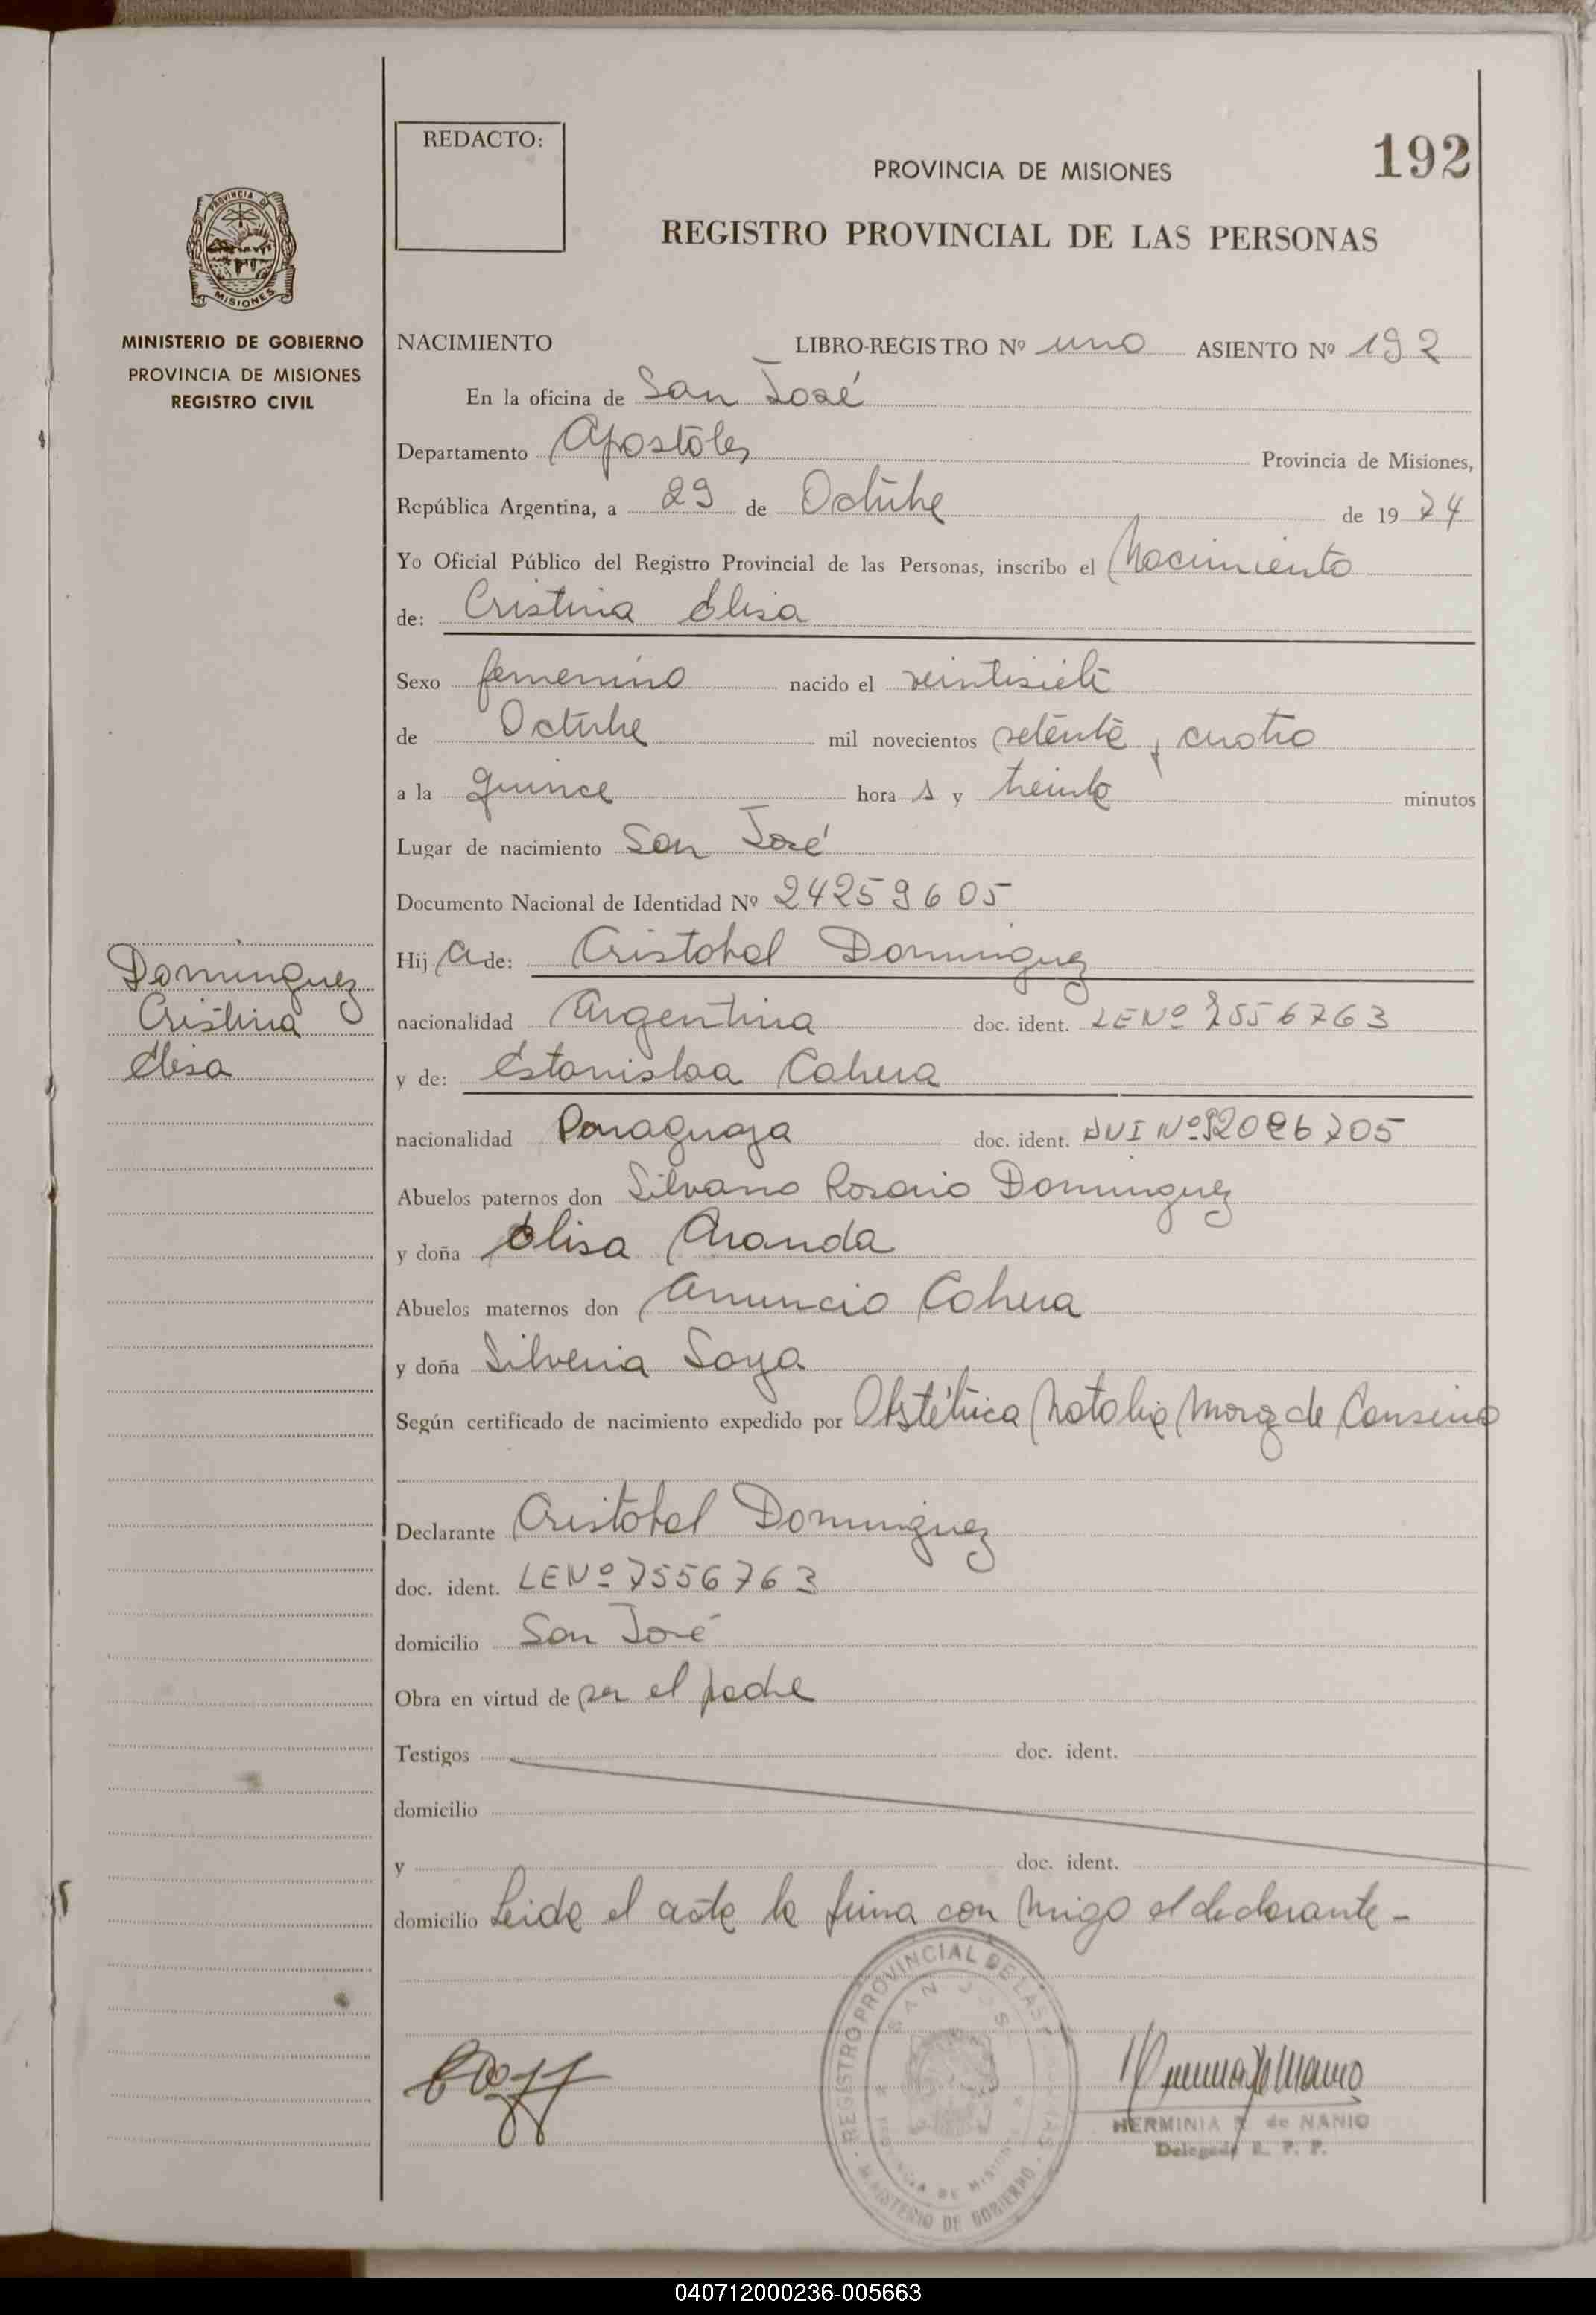 REDACTO:
PROVINCIA DE MISIONES
192
REGISTRO PROVINCIAL DE LAS PERSONAS
PROVINCIA DE
MISIONES
MINISTERIO DE GOBIERNO
PROVINCIA DE MISIONES
REGISTRO CIVIL
NACIMIENTO LIBRO-REGISTRO Nº uno ASIENTO Nº 192
En la oficina de San José
Departamento Apostoles Provincia de Misiones,
República Argentina, a 29 de Octubre de 1974
Yo Oficial Público del Registro Provincial de las Personas, inscribo el Nacimiento
de: Cristina Elisa
Sexo femenino nacido el veintisiete
de Octubre mil novecientos setenta y cuatro
a la quince hora s y treinta minutos
Lugar de nacimiento San José
Documento Nacional de Identidad Nº 24259605
Hij a de: Cristobal Dominguez
nacionalidad Argentina doc. ident. LE Nº 7556763
y de: Estanislaa Cabrera
nacionalidad Paraguaya doc. ident.
Abuelos paternos don Silvano Rosario Dominguez
y doña Elisa Aranda
Abuelos maternos don Anuncio Cabrera
y doña Silveria Soya
Según certificado de nacimiento expedido por Obstétrica Natalia de
Declarante Cristobal Dominguez
doc. ident. LE Nº 7556763
domicilio San José
Obra en virtud de ser el padre
Testigos doc. ident.
domicilio
y doc. ident.
domicilio Leida el acta la firma con migo el declarante -
Dominguez
Cristina
Elisa
REGISTRO PROVINCIAL DE LAS
SAN JOSE
PROVINCIA DE MISIONES
MINISTERIO DE GOBIERNO
HERMINIA de NANIO
Delegada R. P. P.
040712000236-005663